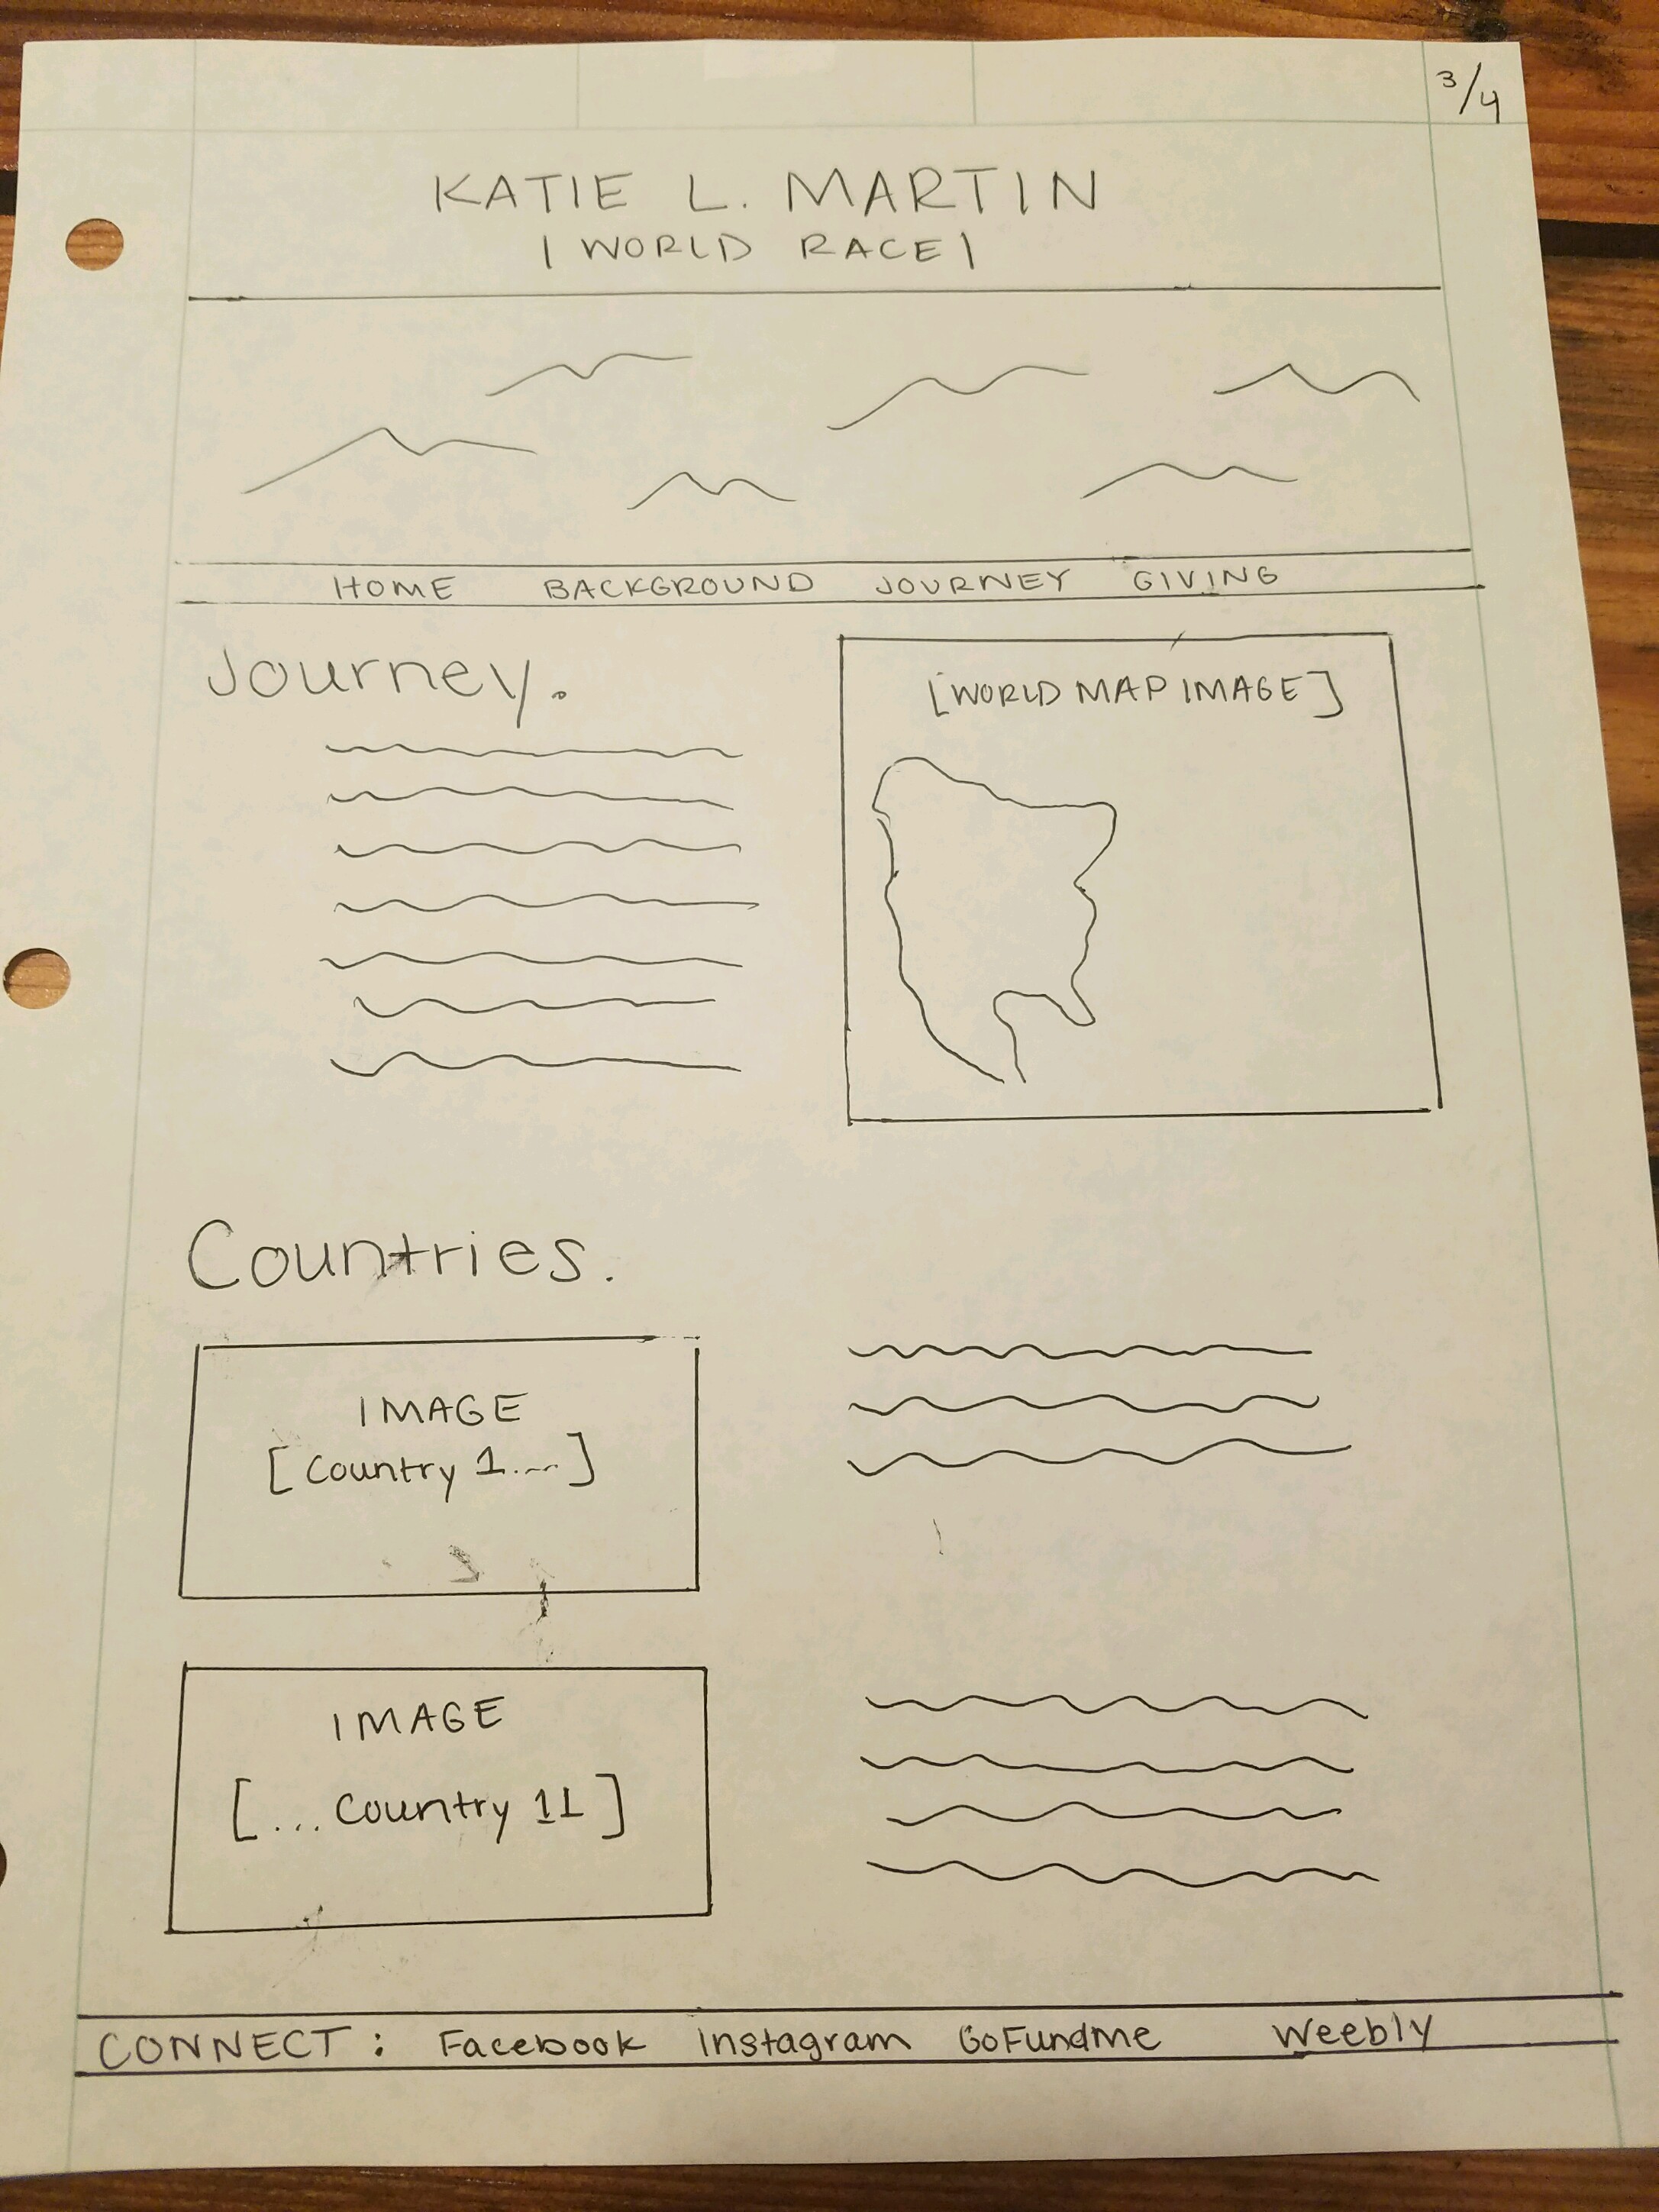 3/4
KATIE L. MARTIN
| WORLD RACE |
HOME BACKGROUND JOURNEY GIVING
Journey.
[WORLD MAP IMAGE]
Countries.
IMAGE
[Country 1....]
IMAGE
[... Country 11]
CONNECT: Facebook Instagram GoFundMe Weebly